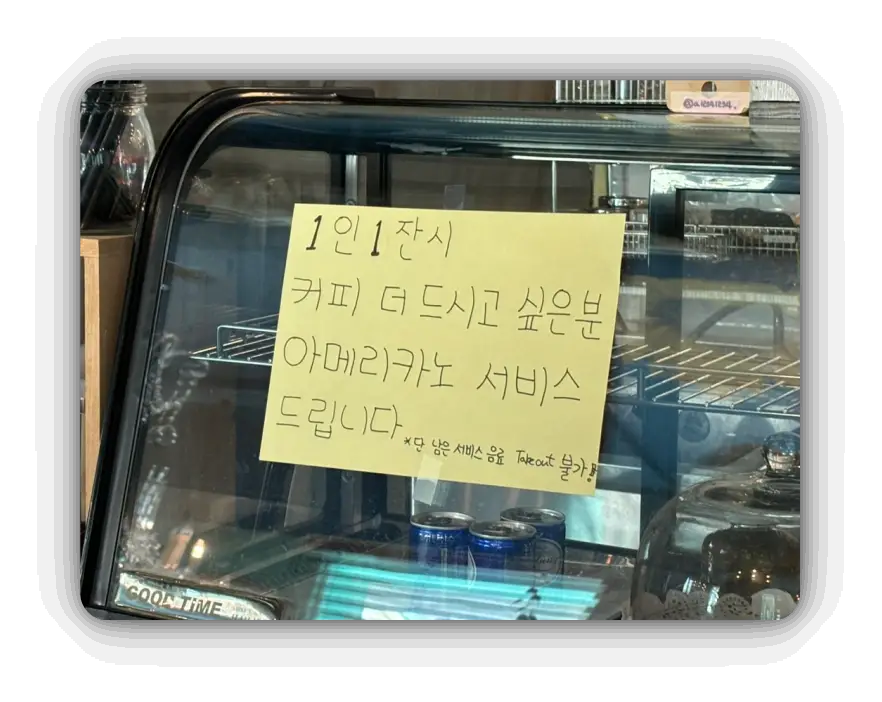 1인 1잔시
커피 더 드시고 싶은분
아메리카노 서비스
드립니다
*단 남은 서비스 음료 Take out 불가!
GOOD TiME